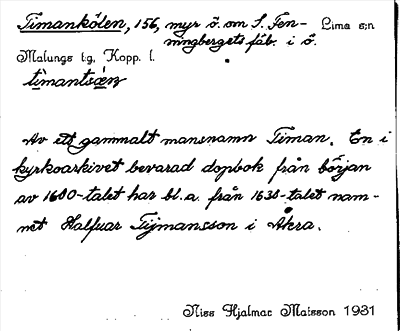 Timankölen, 156, myr ö. om S. Fen-
ningbergets fäb. i ö.
Lima s:n
Malungs t:g, Kopp. l.
Av ett gammalt mansnamn Timan. En i
kyrkoarkivet bevarad dopbok från början
av 1600-talet har bl.a. från 1630-talet nam-
net Halfuar Tijmansson i Åkra.
Niss Hjalmar Matsson 1931